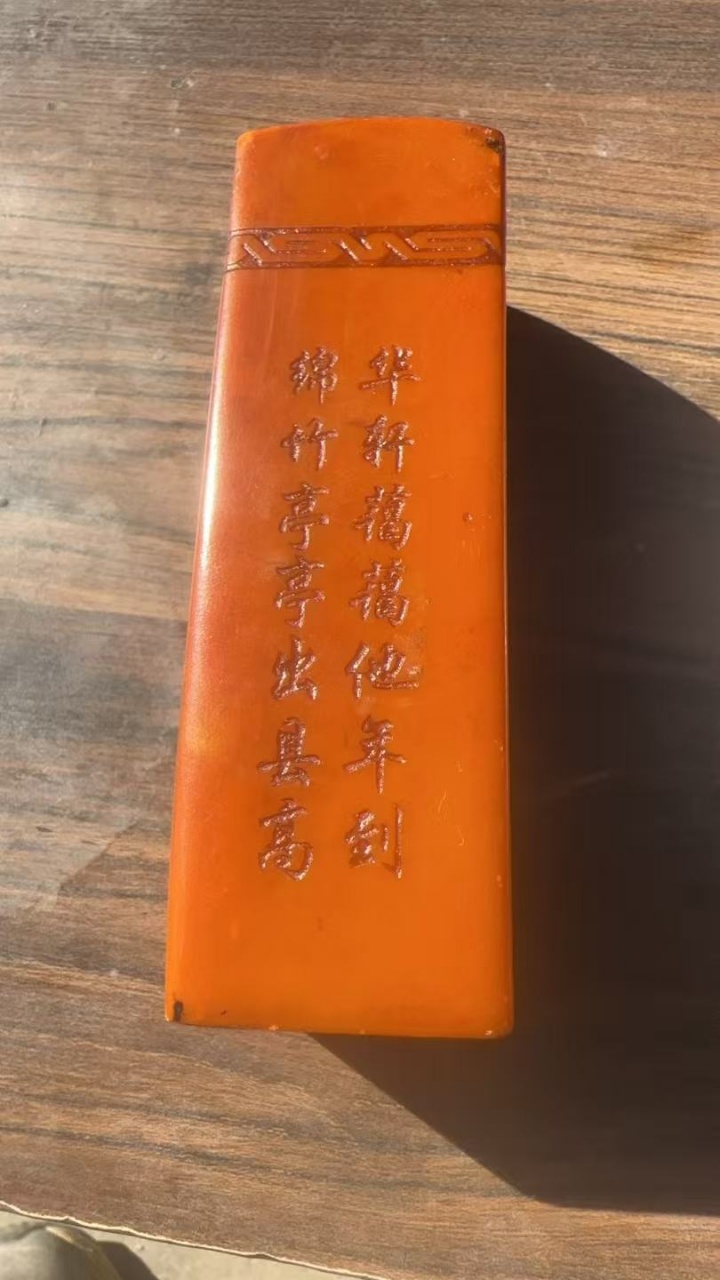 华轩蔼蔼他年到
绵竹亭亭出县高